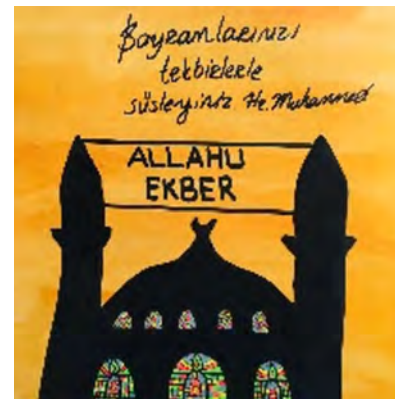 Bayramlarınızı
tekbirlerle
süsleyiniz Hz. Muhammed
ALLAHU
EKBER